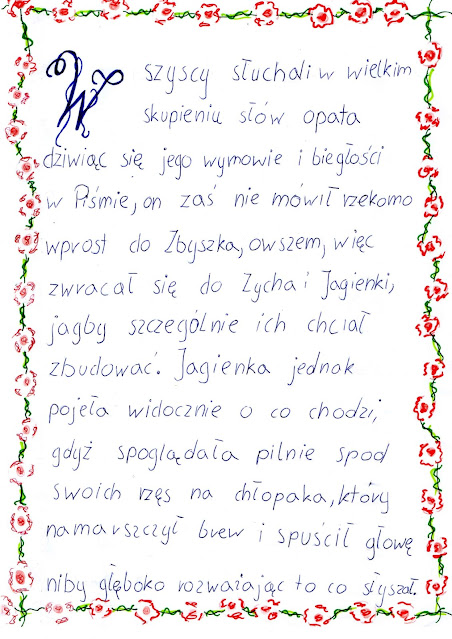 Wszyscy słuchali w wielkim
skupieniu słów opata
dziwiąc się jego wymowie i biegłości
w Piśmie, on zaś nie mówił rzekomo
wprost do Zbyszka, owszem, więc
zwracał się do Zycha i Jagienki,
jagby szczególnie ich chciał
zbudować. Jagienka jednak
pojeła widocznie o co chodzi,
gdyż spoglądała pilnie spod
swoich rzęs na chłopaka, który
namarszczył brew i spuścił głowę
niby głęboko rozważając to co słyszał.